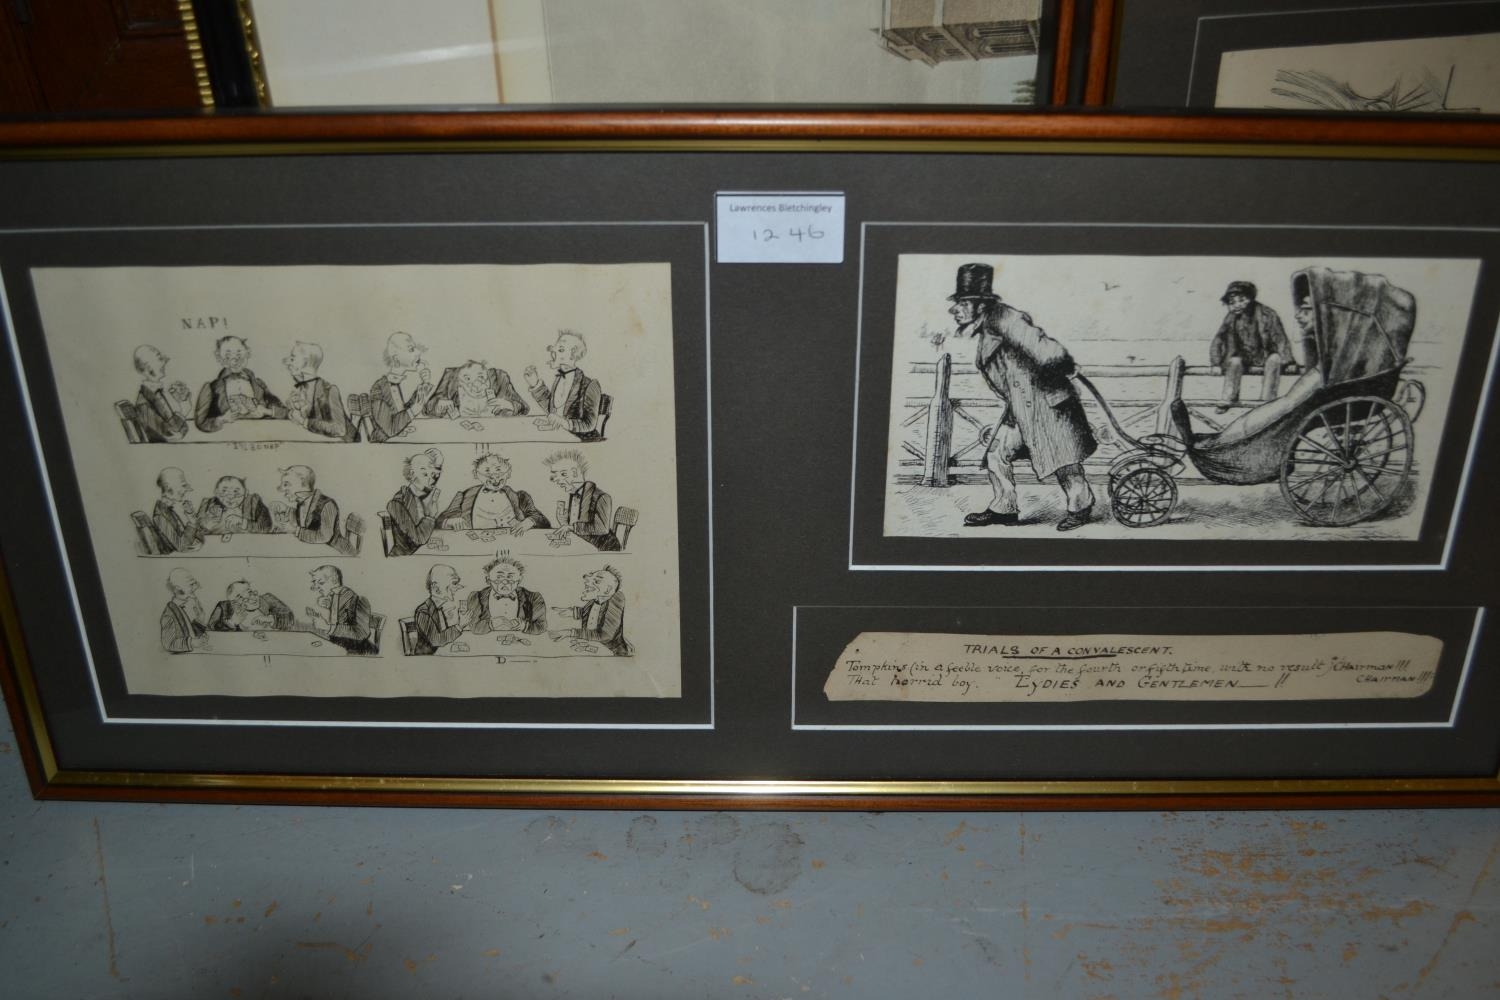 Lawrences Bletchingley
1246
NAP!
!!!
!
!!!
!!
D——
TRIALS OF A CONVALESCENT.
Tompkins (in a feeble voice, for the fourth or fifth time, with no result) "CHairman!!!
THat horrid boy. "LyDIES AND GENTLEMEN—— !! CHAIRMAN!!!!